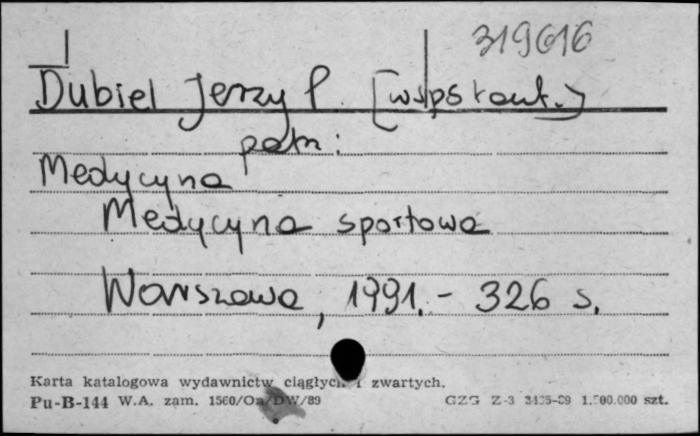 319616
Dubiel Jerzy P. [współaut.]
patrz:
Medycyna
Medycyna sportowa
Warszawa, 1991. - 326 s.
Karta katalogowa wydawnictw ciągłych i zwartych.
Pu-B-144 W.A. zam. 1560/Oa/DW/89 GZG Z-3 3435-89 1.500.000 szt.